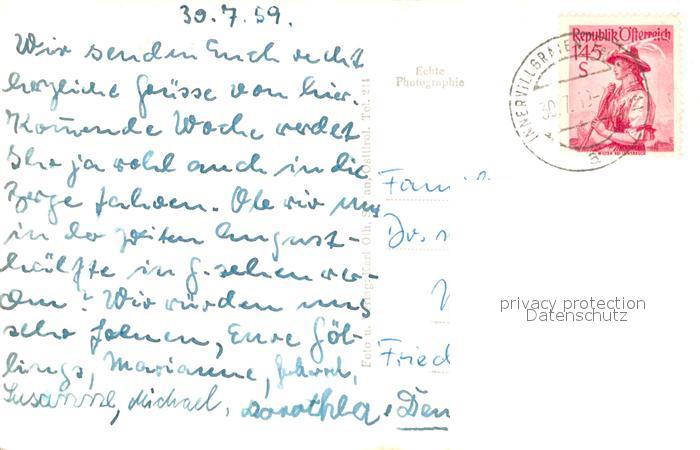 30.7.59.
Wir senden Euch recht
herzliche Grüsse von hier.
Kommende Woche werdet
Ihr ja wohl auch in die
Berge fahren. Ob wir uns
in der zweiten August-
hälfte in G. sehen wer-
den? Wir würden uns
sehr freuen, Eure Göb-
lings, Marianne,
Susanne, Michael, Dorothea,
Echte
Photographie
Foto u. Verlag Karl
Osttirol. Tel. 214
Fami
Dr.
Fried
Republik Österreich
1.45
S
INNERVILLGRATEN
30.7.
privacy protection
Datenschutz